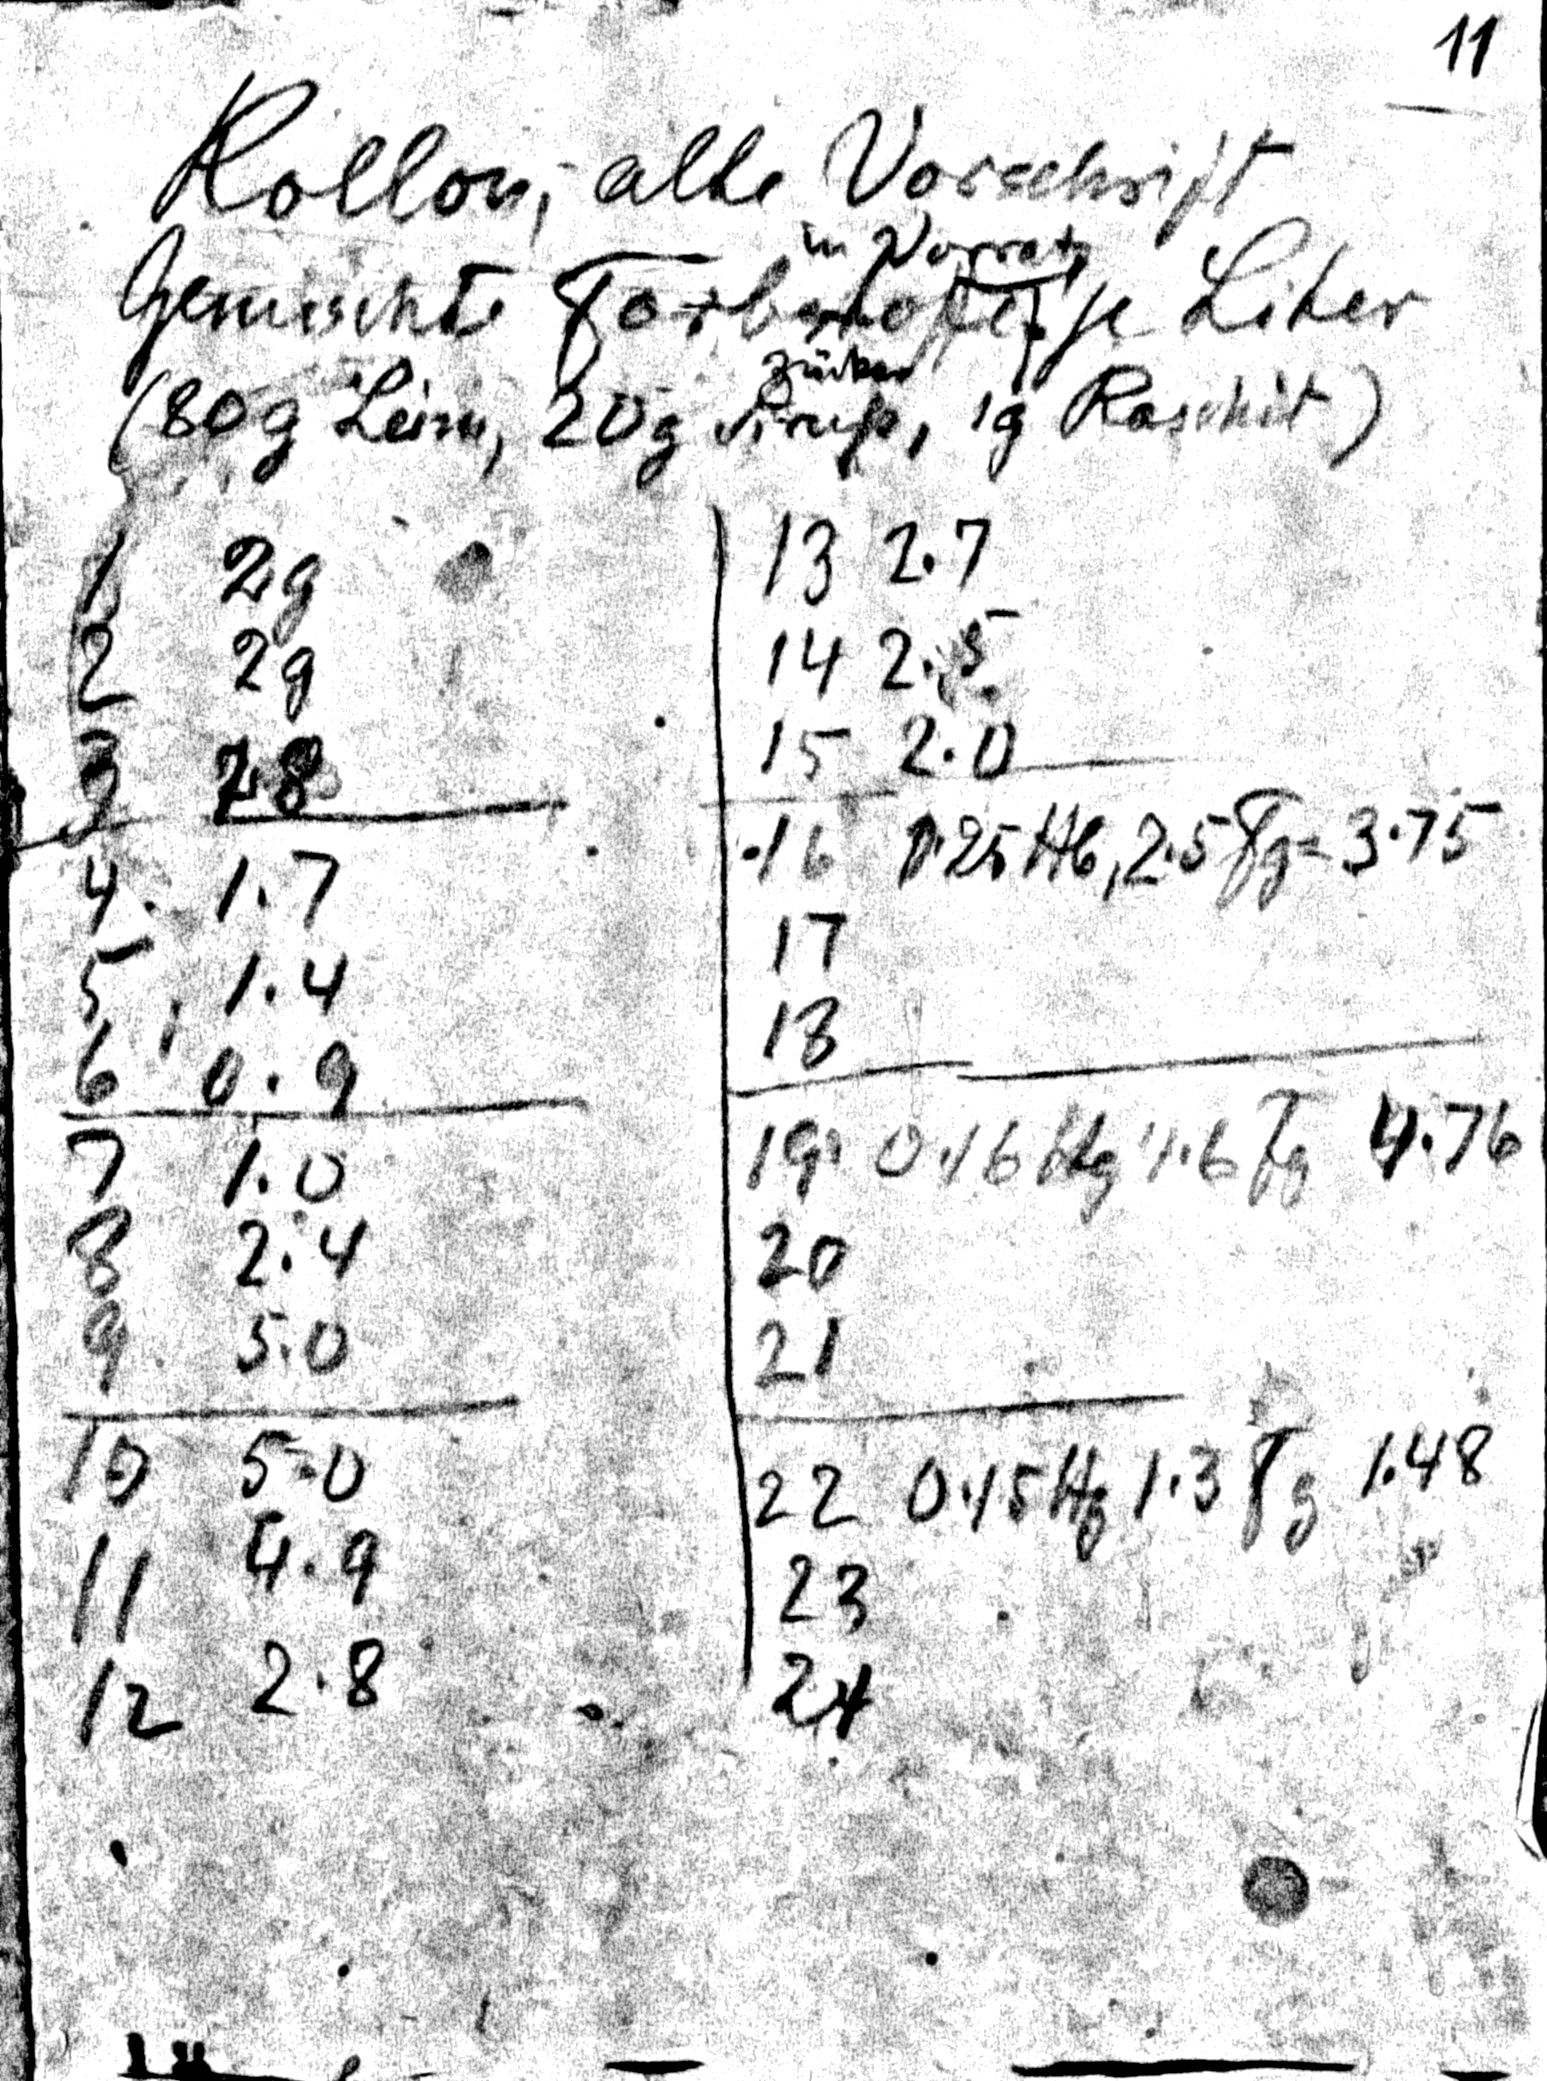 11
Kollon, alte Vorschrift
in Vorrat
Gemischte Farbstoffe je Liter
Zucker
(80g Leim, 20g Sirup, 1g Raschit)
1 2g
2 2g
3 2.8
4. 1.7
5 1.4
6 0.9
7 1.0
8 2.4
9 5.0
10 5.0
11 4.9
12 2.8
13 2.7
14 2.5
15 2.0
16 0.25 Hg, 2.5 Tg = 3.75
17
18
19. 0.16 Hg 1.6 Tg 4.76
20
21
22 0.15 Hg 1.3 Tg 1.48
23
24